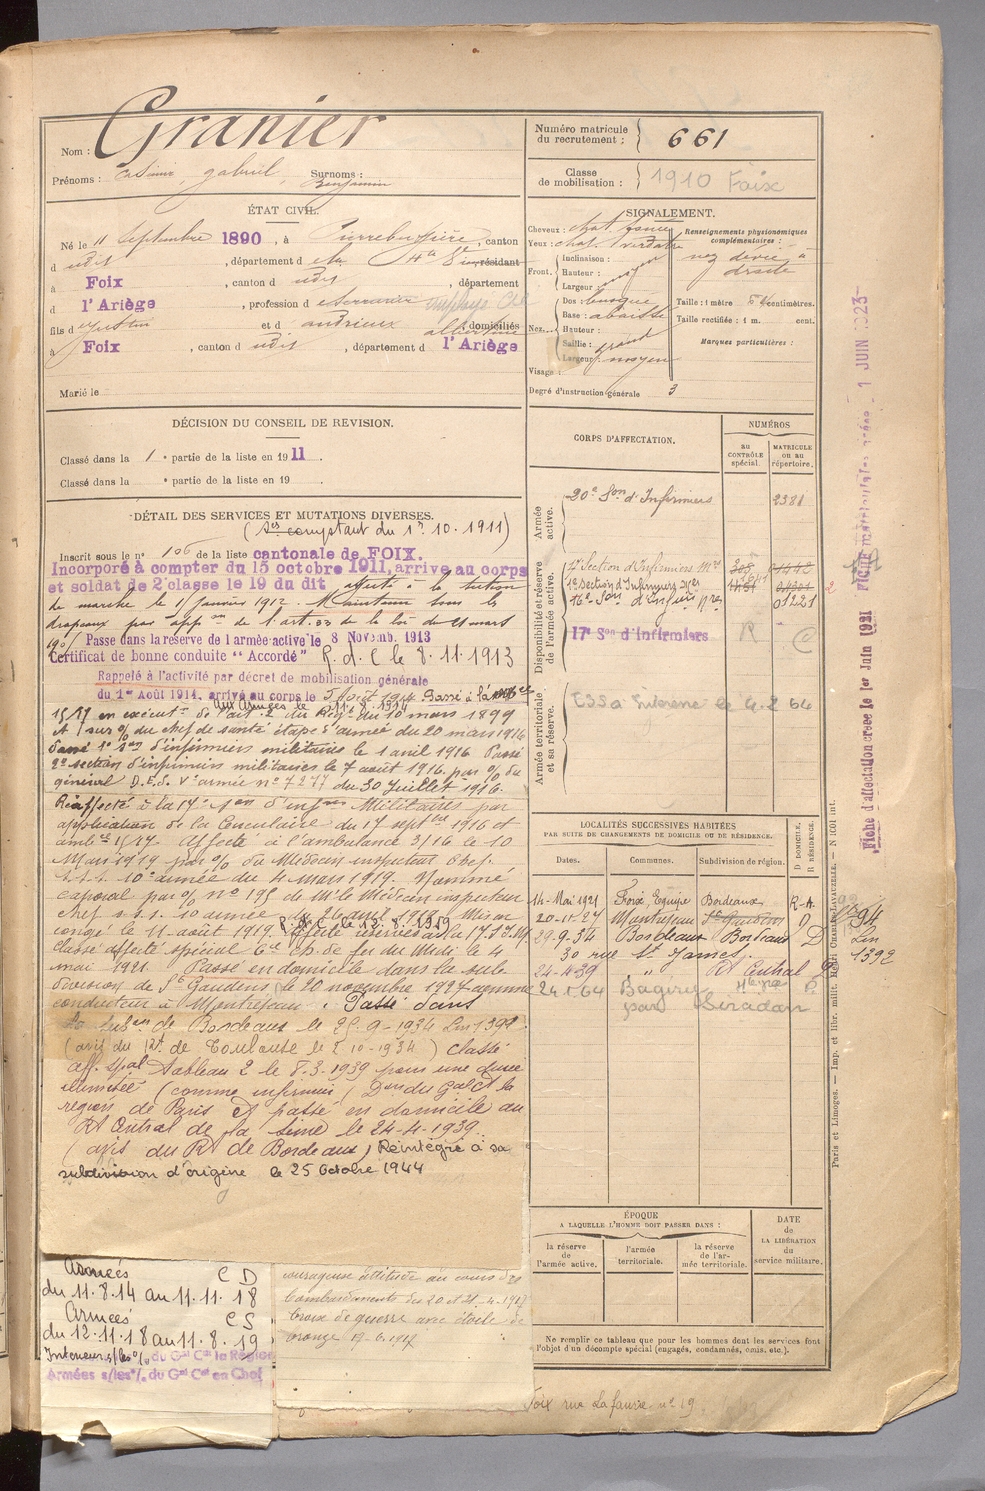 Nom : Granier
Prénoms : Casimir, gabriel, Benjamin Surnoms :
ÉTAT CIVIL.
Né le 11 Septembre 1890, à Pierrebuffière, canton
d udit, département d e la Hte Vne résidant
à Foix, canton d udit, département
d l'Ariège, profession d
fils d Justin et d andrieux albertine domiciliés
à Foix, canton d udit, département d l'Ariège
Marié le
DÉCISION DU CONSEIL DE REVISION.
Classé dans la 1e partie de la liste en 1911.
Classé dans la e partie de la liste en 19
DÉTAIL DES SERVICES ET MUTATIONS DIVERSES.
(Ses comptant du 1r 10. 1911)
Inscrit sous le n° 106 de la liste cantonale de FOIX.
Incorporé à compter du 15 octobre 1911, arrive au corps
et soldat de 2e classe le 19 du dit affecté à la section
de marche le 11 Janvier 1912. Maintenu sous les
drapeaux par appon de l'art. 33 de la loi du 21 mars
1905 Passe dans la réserve de l'armée active le 8 Novemb. 1913
Certificat de bonne conduite "Accordé" R. d. C le 8. 11. 1913
Rappelé à l'activité par décret de mobilisation générale
du 1er Août 1914, arrivé au corps le 5 août 1914 Passé à l'ambce
Aux Armées le 11. 8. 1914
15/17 en exécutn de l'art. 2 du Règt du 10 mars 1899
et sur % du chef de santé étape d'armée du 20 mars 1916
passé 1e son d'infirmiers militaires le 1 avril 1916 Passé
2e section d'infirmiers militaires le 7 août 1916. par % du
général D.E.S. Ve armée n° 7277 du 30 Juillet 1916.
Réaffecté à la 17e son d'infres Militaires par
application de la Circulaire du 17 septbre 1916 et
ambce 15/17 Affecté à l'ambulance 3/16 le 10
Mars 1919 par % du Médecin inspecteur Chef.
10e armée du 4 Mars 1919. Nommé
caporal par % n° 195 de Mr le Médecin inspecteur
chef 10 armée du 26 avril 1919. Mis en
congé le 11 août 1919. R. d. C le 12. 8. 1919
Classé affecté spécial 6e ch. de fer du Midi le 4
mai 1921. Passé en domicile dans la sub-
division de St Gaudens le 20 novembre 1927 comme
conducteur à Montréjeau. Passé dans
la subon de Bordeaux le 29-9-1934 Lin 1392
(avis du Rt de Toulouse le 2 10-1934) classé
aff. spal Tableau 2 le 8.3.1939 pour une durée
illimitée (comme infirmier) Don du Gal Ct la
région de Paris et passé en domicile au
Rt Central de la Seine le 24-4-1939.
(avis du Rt de Bordeaux) Réintégré à sa
subdivision d'origine le 25 Octobre 1944
Armées C D
du 11. 8. 14 au 11. 11. 18
Armées C S
du 12. 11. 18 au 11. 8. 19
Intérieur s/les % du Gal Ct la Région
Armées s/les % du Gal Ct en Chef
courageuse attitude au cours des
bombardements du 20 et 21-4-1917
Croix de guerre avec étoile de
bronze 17-6-1917
Numéro matricule du recrutement : 661
Classe de mobilisation : 1910 Foix
SIGNALEMENT.
Cheveux : chat. foncé
Yeux : chat. verdâtre
Front. Inclinaison :
Hauteur : moyen
Largeur :
Nez. Dos : busqué
Base : abaissé
Hauteur :
Saillie : grand
Largeur : moyen
Visage :
Renseignements physionomiques complémentaires :
nez dévié à
droite
Taille : 1 mètre centimètres.
Taille rectifiée : 1 m. cent.
Marques particulières :
Degré d'instruction générale 3
CORPS D'AFFECTATION.
NUMÉROS
au CONTRÔLE spécial.
MATRICULE ou au répertoire.
Armée active.
20e Son d'Infirmiers 2381
Disponibilité et réserve de l'armée active.
1e Section d'Infirmiers Mres
16e Son d'Infirs Mres 01221
17e Son d'infirmiers R
Armée territoriale et sa réserve.
le 4-2 64
LOCALITÉS SUCCESSIVES HABITÉES
PAR SUITE DE CHANGEMENTS DE DOMICILE OU DE RÉSIDENCE.
Dates. Communes. Subdivision de région. D DOMICILE. R RÉSIDENCE.
14-Mai 1921 Foix, Equipe Bordeaux R-A.
20-11-27 Montréjeau St Gaudens D
29-9-34 Bordeaux Bordeaux D Lin 1392
30 rue St James.
24-4-39 " Rt Central D
24.1.64 Bagiry Hte gne D
par Siradan
ÉPOQUE
A LAQUELLE L'HOMME DOIT PASSER DANS :
la réserve de l'armée active.
l'armée territoriale.
la réserve de l'armée territoriale.
DATE DE LA LIBÉRATION du service militaire.
Ne remplir ce tableau que pour les hommes dont les services font
l'objet d'un décompte spécial (engagés, condamnés, omis, etc.).
Foix rue Lafaurie n° 19
Fiche d'affectation créée le 1er Juin 1921
1 JUIN 1923
Paris et Limoges. — Imp. et libr. milit. Henri CHARLES-LAVAUZELLE. — N° 1001 int.